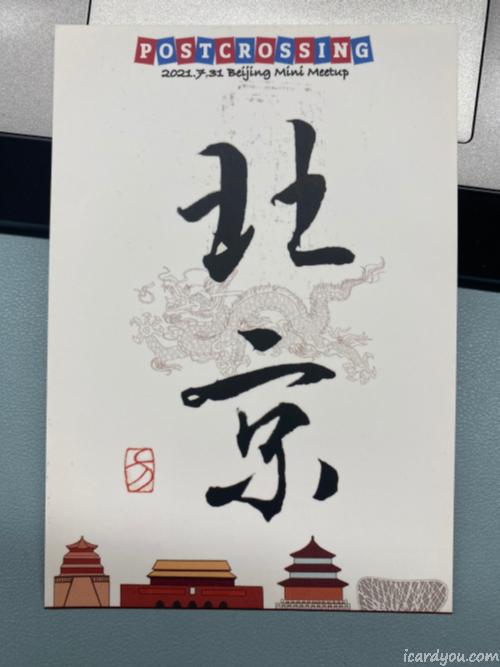 POSTCROSSING
2021.7.31 Beijing Mini Meetup
北
京
icardyou.com